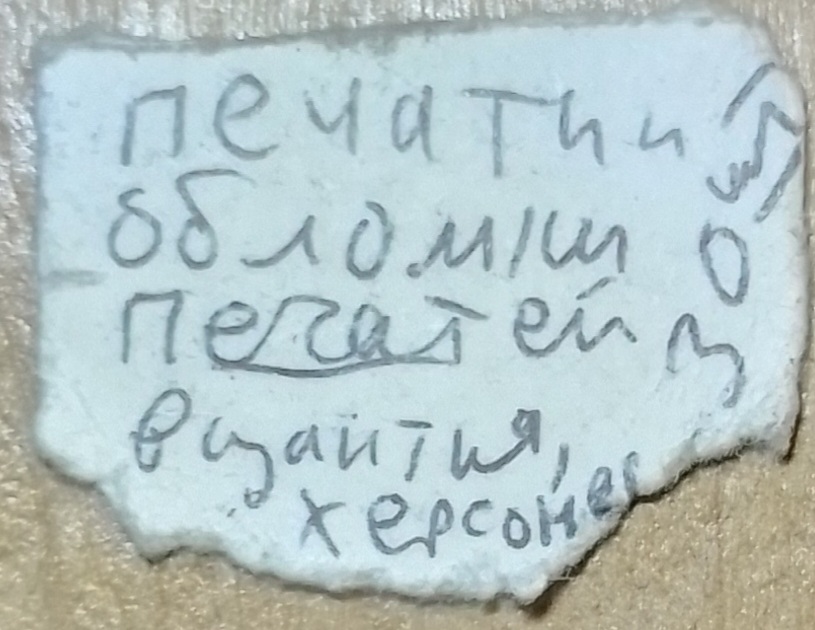 печати и
обломки
печатей
византия,
херсоне